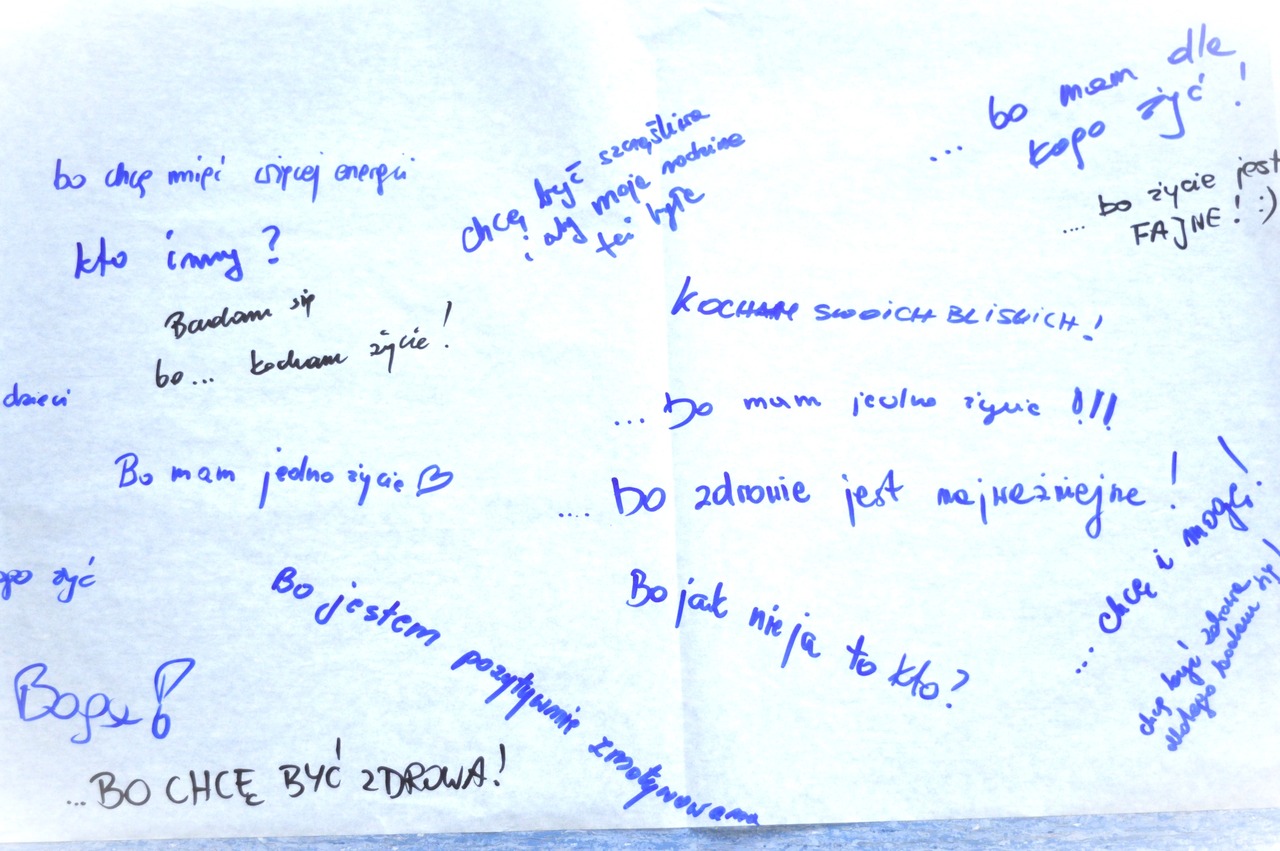 ... bo mam dla
kogo żyć!
bo chcę mieć więcej energii
chcę być szczęśliwa
i aby moja rodzina
też była
.... bo życie jest
FAJNE! :)
kto inny?
Badam się
bo... kocham życie!
KOCHAM SWOICH BLISKICH!
dzieci
... bo mam jedno życie !!!
Bo mam jedno życie ♡
.... bo zdrowie jest najważniejsze!
... chcę i mogę!
żyć
Bo jestem pozytywnie zmotywowana
Bo jak nie ja to kto?
chcę być zdrowa
dlatego badam się!
...BO CHCĘ BYĆ ZDROWA!